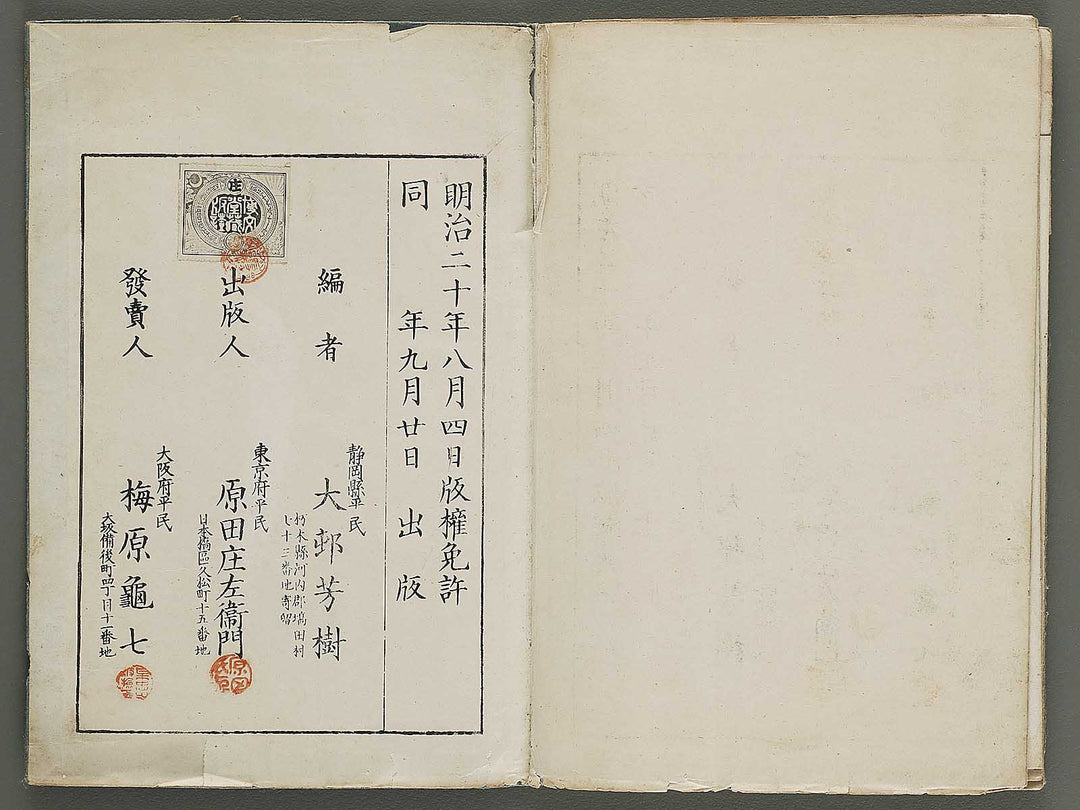 明治二十年八月四日版權免許
同　年九月廿日　出版
編者
静岡縣平民
大邨芳樹
栃木縣河内郡塙田村
七十三番地寄留
出版人
東京府平民
原田庄左衞門
日本橋區久松町十五番地
發賣人
大阪府平民
梅原龜七
大坂備後町四丁目十一番地